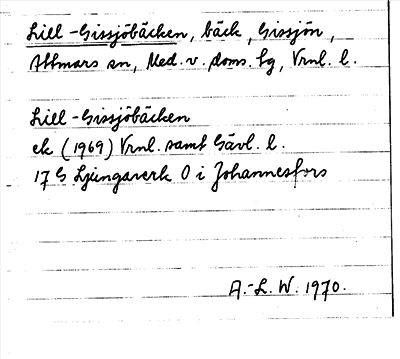 Lill-Gissjöbäcken, bäck, Gissjön,
Attmars sn, Med. v. doms. lg, Vrnl. l.
Lill-Gissjöbäcken
ek (1969) Vrnl. samt Gävl. l.
17 G Ljungaverk 0 i Johannesfors
A.-L. W. 1970.